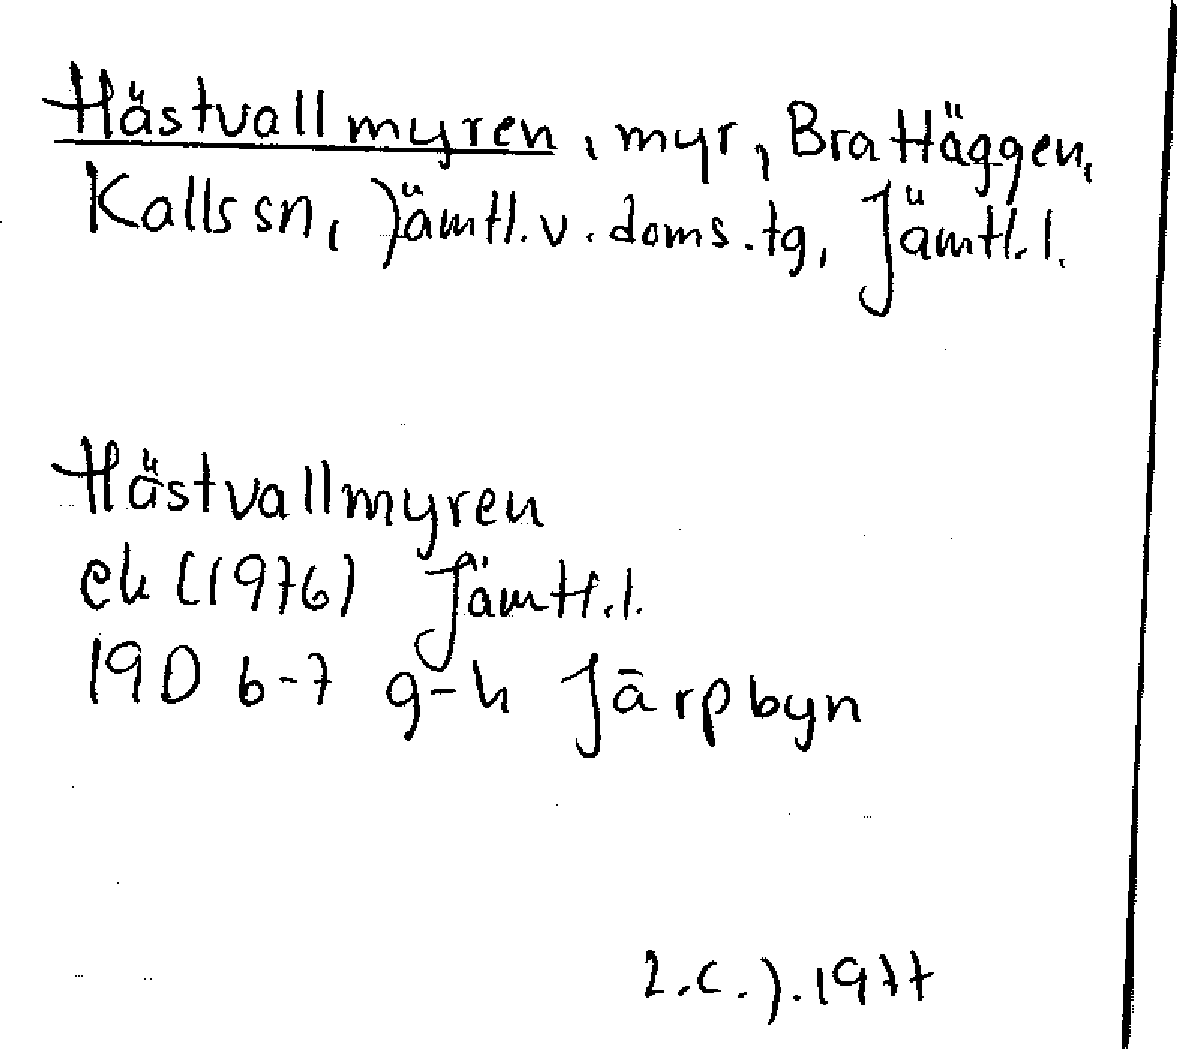 Hästvallmyren, myr, Brattäggen,
Kalls sn, Jämtl. v. doms. tg, Jämtl. l.
Hästvallmyren
ek (1976) Jämtl. l.
19D 6-7 g-h Järpbyn
L.C.J. 1977